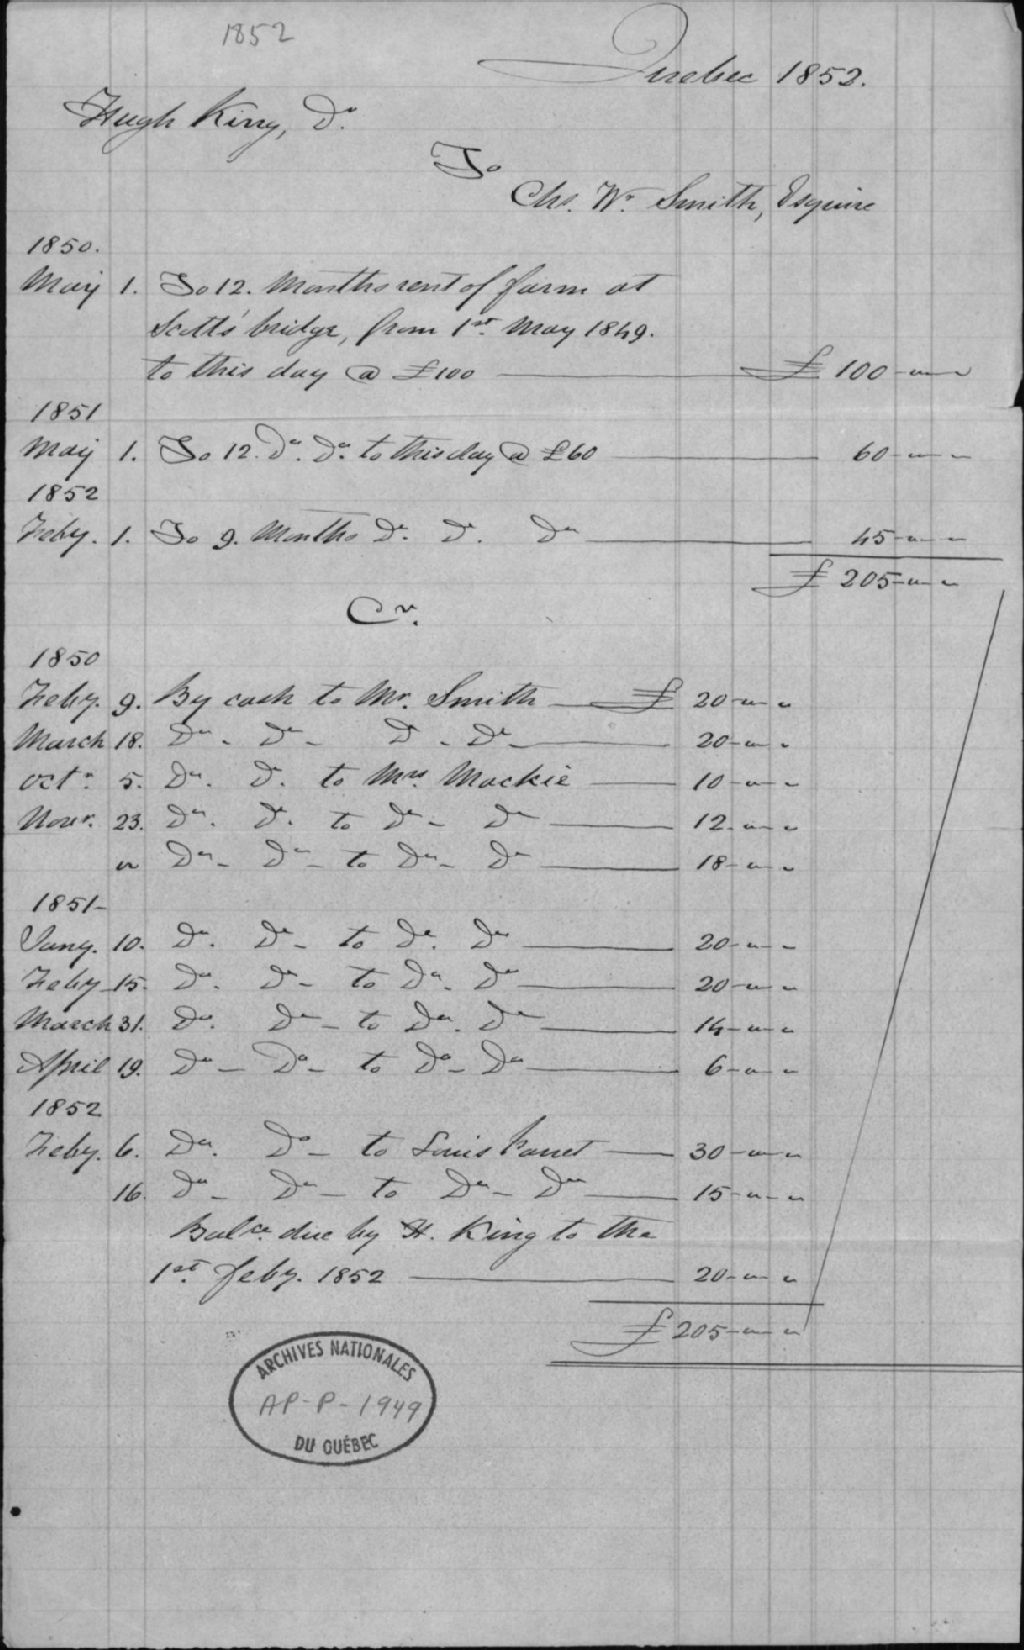 1852
Quebec 1852.
Hugh King, Dr.
To
Chs. Wm. Smith, Esquire
1850.
May 1. To 12. Months rent of farm at
Scott's bridge, from 1st. May 1849.
to this day @ £100 — £ 100 - " - "
1851
May 1. To 12. Do. Do. to this day @ £60 — 60 - " - "
1852
Feby. 1. To 9. Months Do. Do. Do — 45 - " - "
£ 205 - " - "
Cr.
1850
Feby. 9. By cash to Mr. Smith — £ 20 - " - "
March 18. Do. Do - Do. Do — 20 - " - "
Octr. 5. Do. Do. to Mrs. Mackie — 10 - " - "
Novr. 23. Do. Do. to Do - Do — 12 - " - "
" Do - Do - to Do - Do — 18 - " - "
1851 -
Jany. 10. Do. Do - to Do. Do — 20 - " - "
Feby 15. Do. Do - to Do. Do — 20 - " - "
March 31. Do. Do - to Do. Do — 14 - " - "
April 19. Do - Do - to Do - Do — 6 - " - "
1852
Feby. 6. Do. Do - to Louis Panet — 30 - " - "
16. Do - Do - to Do - Do — 15 - " - "
Balce. due by H. King to the
1st. Feby. 1852 — 20 - " - "
£ 205 - " - "
ARCHIVES NATIONALES
AP-P-1949
DU QUÉBEC